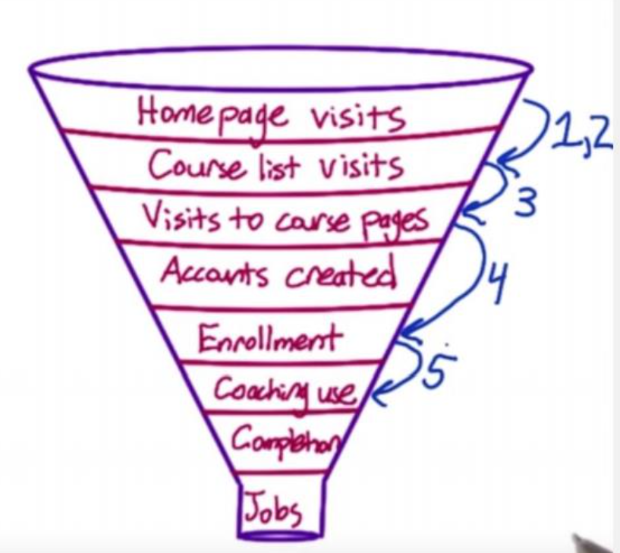 Homepage visits
1,2
Course list visits
3
Visits to course pages
Accounts created
4
Enrollment
5
Coaching use
Completion
Jobs